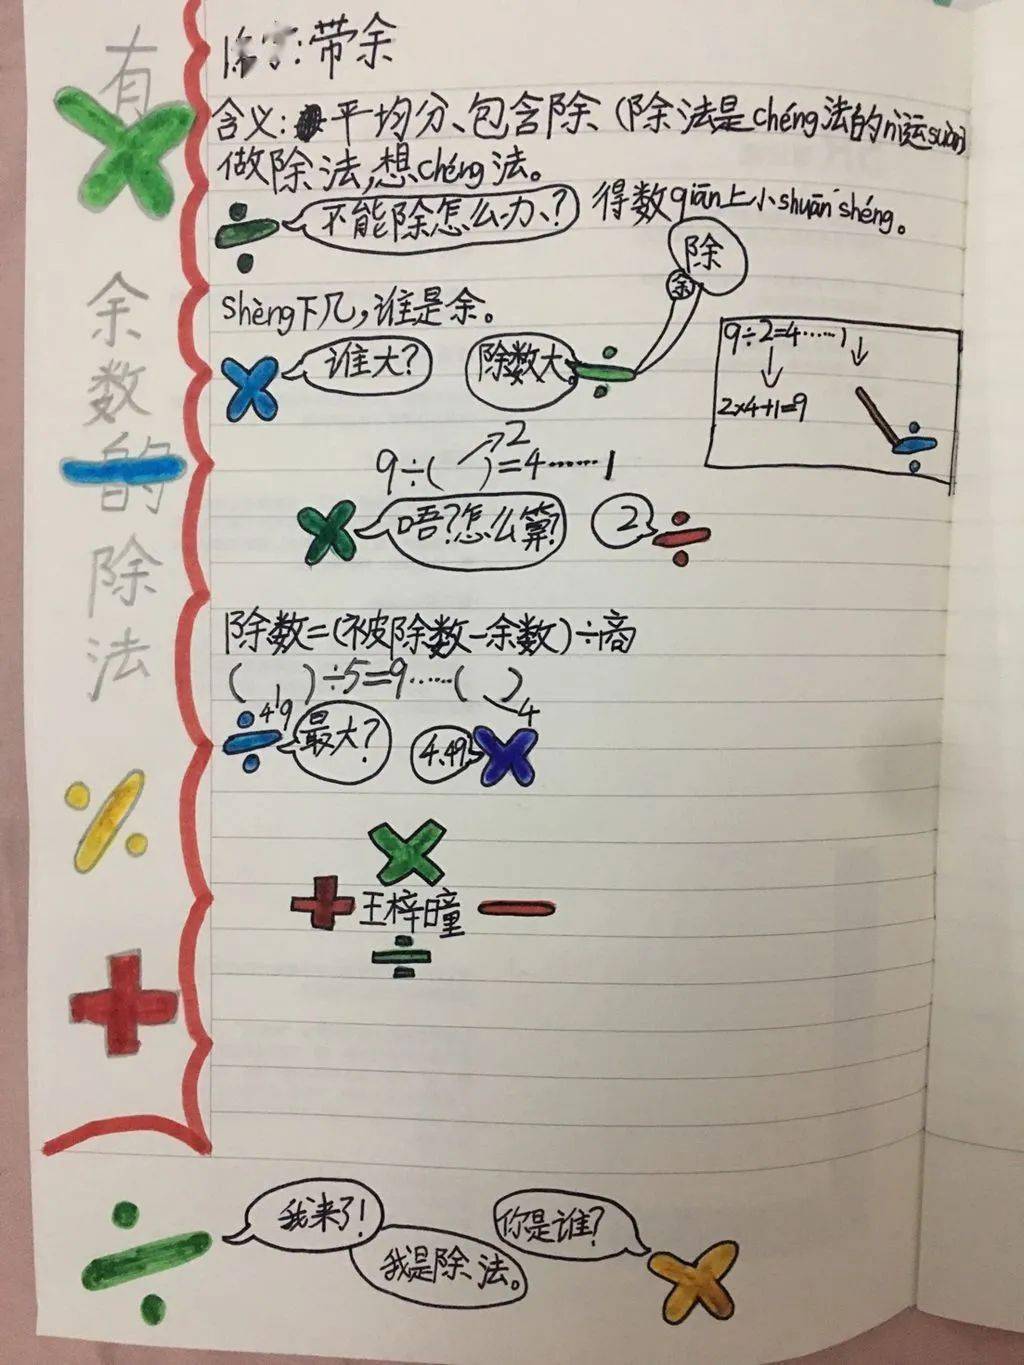 有余数的除法
:带余
含义:平均分、包含除(除法是chéng法的nì运suàn)
做除法,想chéng法。
不能除怎么办、?
得数qiān上小shuān shéng。
除
余
shèng下几,谁是余。
谁大?
除数大。
9÷2=4……1
2×4+1=9
2
9÷( )=4……1
唔?怎么算?
2
除数=(被除数-余数)÷商
( )÷5=9……( )
49
4
最大?
4.49
王梓瞳
我来了!
我是除法。
你是谁?